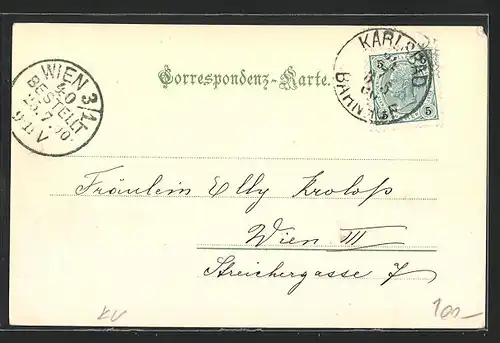 WIEN 3/1
40
BESTELLT
9 ½ V
Correspondenz-Karte.
KARLSBAD
BAHNHOF
5 5
Fräulein Elly Kroloß
Wien III
Streichergasse 7
KV
100-